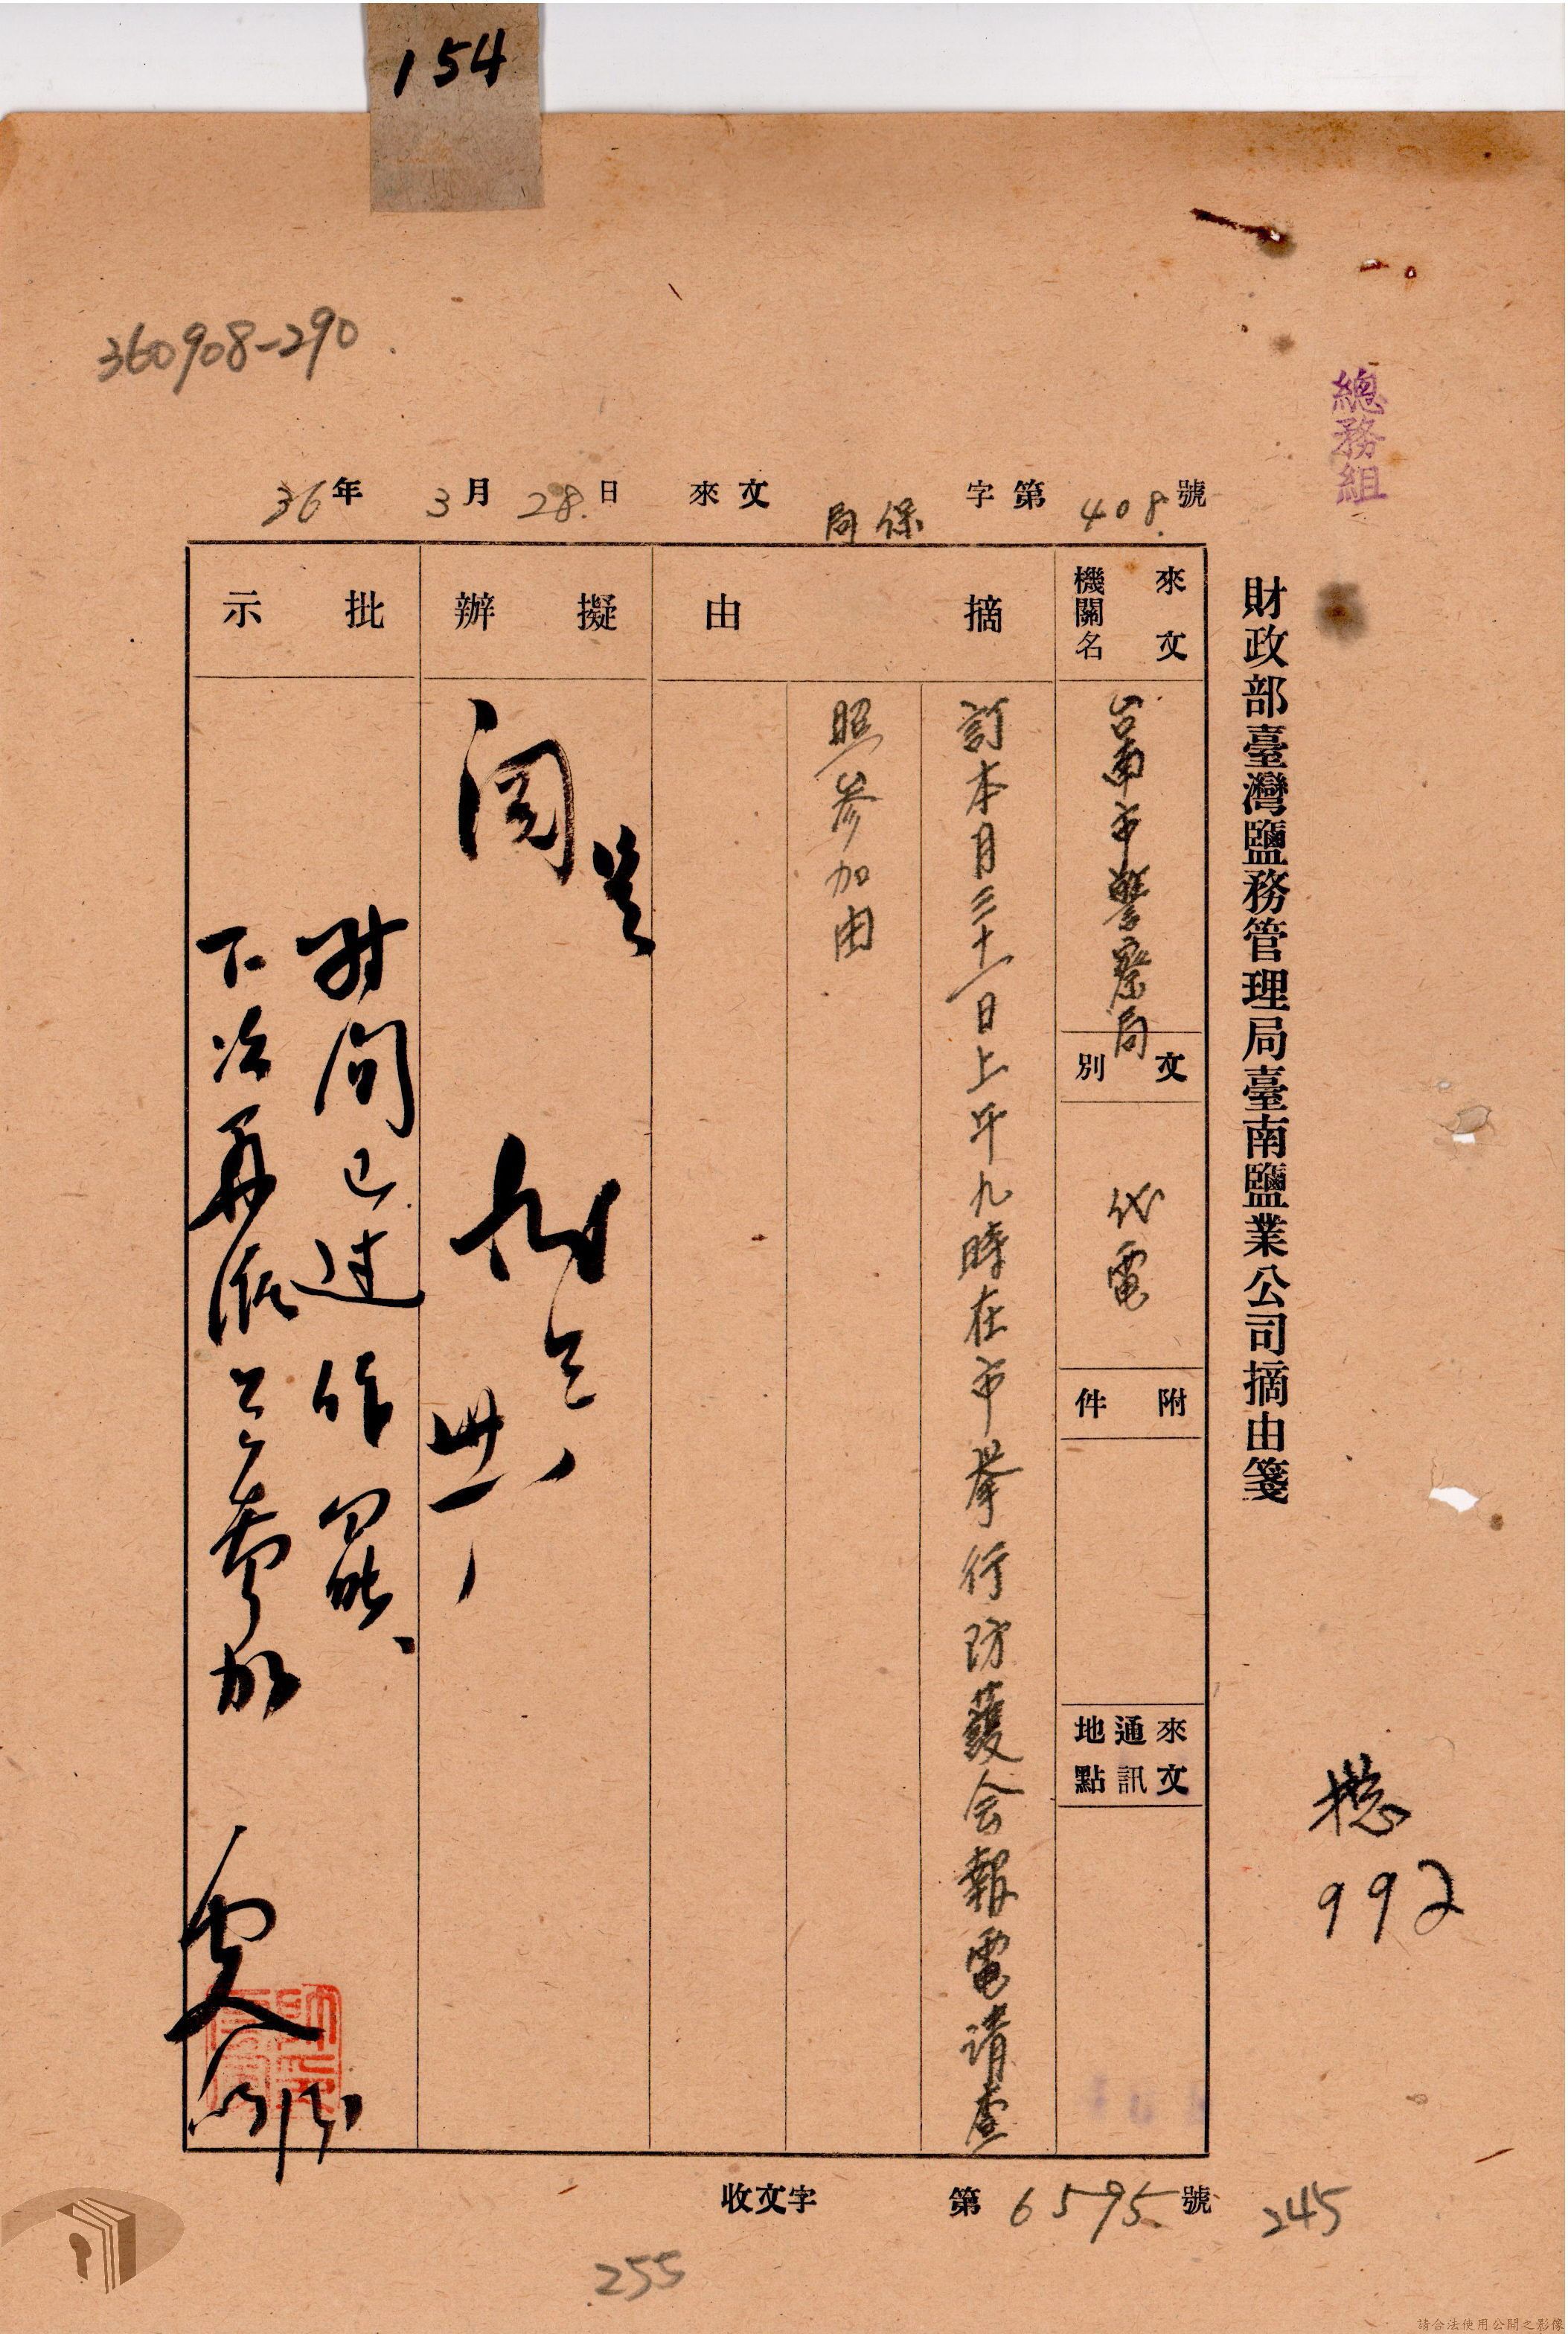 154
360908-290
總務組
36年 3月 28日 來文 局保 字第 408 號
財政部臺灣鹽務管理局臺南鹽業公司摘由箋
來文機關名
台南市警察局
文別
代電
附件
來文通訊地點
摘由
訂本月三十一日上午九時在市舉行防護会報電請查
照参加由
擬辦
閱
卅一
批示
时间已过作罷、
下次再派公参加
總
992
收文字 第 6595 號
245
255
請合法使用公開之影像